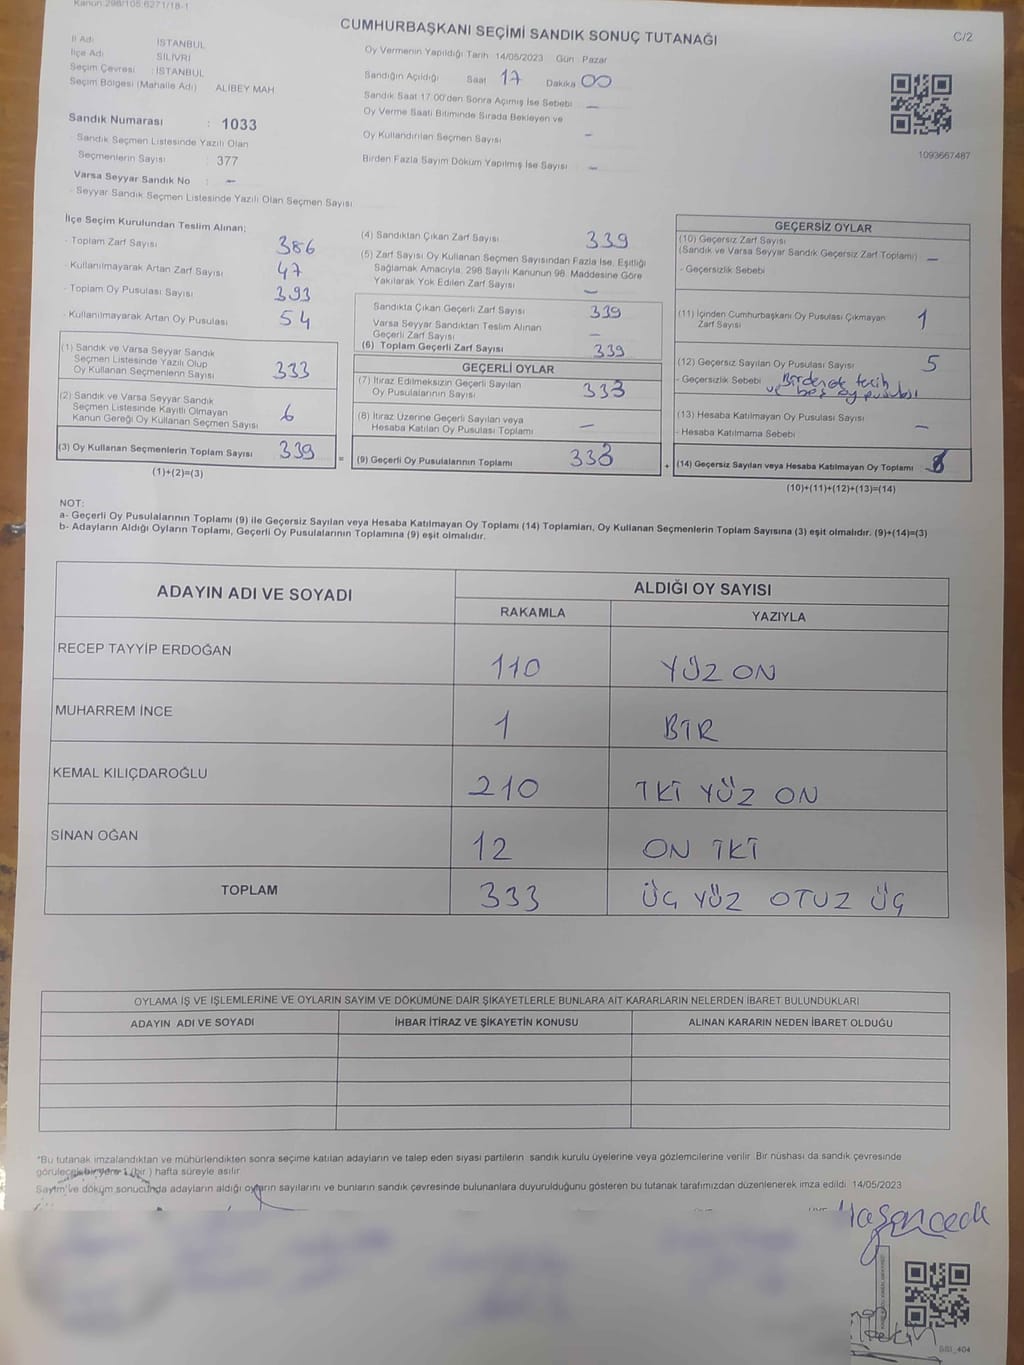 Kanun:298/105:6271/18-1
CUMHURBAŞKANI SEÇİMİ SANDIK SONUÇ TUTANAĞI
C/2
İl Adı : İSTANBUL
İlçe Adı : SİLİVRİ
Seçim Çevresi : İSTANBUL
Seçim Bölgesi (Mahalle Adı) ALİBEY MAH.
Oy Vermenin Yapıldığı Tarih 14/05/2023 Gün Pazar
Sandığın Açıldığı Saat 17 Dakika 00
Sandık Saat 17:00'den Sonra Açımış İse Sebebi —
Oy Verme Saati Bitiminde Sırada Bekleyen ve
Oy Kullandırılan Seçmen Sayısı —
Birden Fazla Sayım Döküm Yapılmış İse Sayısı —
1093667487
Sandık Numarası : 1033
Sandık Seçmen Listesinde Yazılı Olan
Seçmenlerin Sayısı : 377
Varsa Seyyar Sandık No : —
- Seyyar Sandık Seçmen Listesinde Yazılı Olan Seçmen Sayısı
İlçe Seçim Kurulundan Teslim Alınan;
- Toplam Zarf Sayısı 386
- Kullanılmayarak Artan Zarf Sayısı 47
- Toplam Oy Pusulası Sayısı 393
- Kullanılmayarak Artan Oy Pusulası 54
(1) Sandık ve Varsa Seyyar Sandık
Seçmen Listesinde Yazılı Olup
Oy Kullanan Seçmenlerin Sayısı 333
(2) Sandık ve Varsa Seyyar Sandık
Seçmen Listesinde Kayıtlı Olmayan
Kanun Gereği Oy Kullanan Seçmen Sayısı 6
(3) Oy Kullanan Seçmenlerin Toplam Sayısı 339
(1)+(2)=(3)
=
(4) Sandıktan Çıkan Zarf Sayısı 339
(5) Zarf Sayısı Oy Kullanan Seçmen Sayısından Fazla İse, Eşitliği
Sağlamak Amacıyla, 298 Sayılı Kanunun 98. Maddesine Göre
Yakılarak Yok Edilen Zarf Sayısı —
Sandıkta Çıkan Geçerli Zarf Sayısı 339
Varsa Seyyar Sandıktan Teslim Alınan
Geçerli Zarf Sayısı —
(6) Toplam Geçerli Zarf Sayısı 339
GEÇERLİ OYLAR
(7) İtiraz Edilmeksizin Geçerli Sayılan
Oy Pusulalarının Sayısı 333
(8) İtiraz Üzerine Geçerli Sayılan veya
Hesaba Katılan Oy Pusulası Toplamı —
(9) Geçerli Oy Pusulalarının Toplamı 333
+
GEÇERSİZ OYLAR
(10) Geçersiz Zarf Sayısı
(Sandık ve Varsa Seyyar Sandık Geçersiz Zarf Toplamı) —
- Geçersizlik Sebebi
(11) İçinden Cumhurbaşkanı Oy Pusulası Çıkmayan
Zarf Sayısı 1
(12) Geçersiz Sayılan Oy Pusulası Sayısı 5
- Geçersizlik Sebebi
ve boş oy pusulası
(13) Hesaba Katılmayan Oy Pusulası Sayısı —
- Hesaba Katılmama Sebebi
(14) Geçersiz Sayılan veya Hesaba Katılmayan Oy Toplamı
(10)+(11)+(12)+(13)=(14)
NOT:
a- Geçerli Oy Pusulalarının Toplamı (9) ile Geçersiz Sayılan veya Hesaba Katılmayan Oy Toplamı (14) Toplamları, Oy Kullanan Seçmenlerin Toplam Sayısına (3) eşit olmalıdır. (9)+(14)=(3)
b- Adayların Aldığı Oyların Toplamı, Geçerli Oy Pusulalarının Toplamına (9) eşit olmalıdır.
ADAYIN ADI VE SOYADI ALDIĞI OY SAYISI
RAKAMLA YAZIYLA
RECEP TAYYİP ERDOĞAN 110 YÜZ ON
MUHARREM İNCE 1 BİR
KEMAL KILIÇDAROĞLU 210 İKİ YÜZ ON
SİNAN OĞAN 12 ON İKİ
TOPLAM 333 ÜÇ YÜZ OTUZ ÜÇ
OYLAMA İŞ VE İŞLEMLERİNE VE OYLARIN SAYIM VE DÖKÜMÜNE DAİR ŞİKAYETLERLE BUNLARA AİT KARARLARIN NELERDEN İBARET BULUNDUKLARI
ADAYIN ADI VE SOYADI İHBAR İTİRAZ VE ŞİKAYETİN KONUSU ALINAN KARARIN NEDEN İBARET OLDUĞU
*Bu tutanak imzalandıktan ve mühürlendikten sonra seçime katılan adayların ve talep eden siyasi partilerin sandık kurulu üyelerine veya gözlemcilerine verilir. Bir nüshası da sandık çevresinde
görülecek bir yere 1 (bir ) hafta süreyle asılır.
Sayım ve döküm sonucunda adayların aldığı oyların sayılarını ve bunların sandık çevresinde bulunanlara duyurulduğunu gösteren bu tutanak tarafımızdan düzenlenerek imza edildi. 14/05/2023